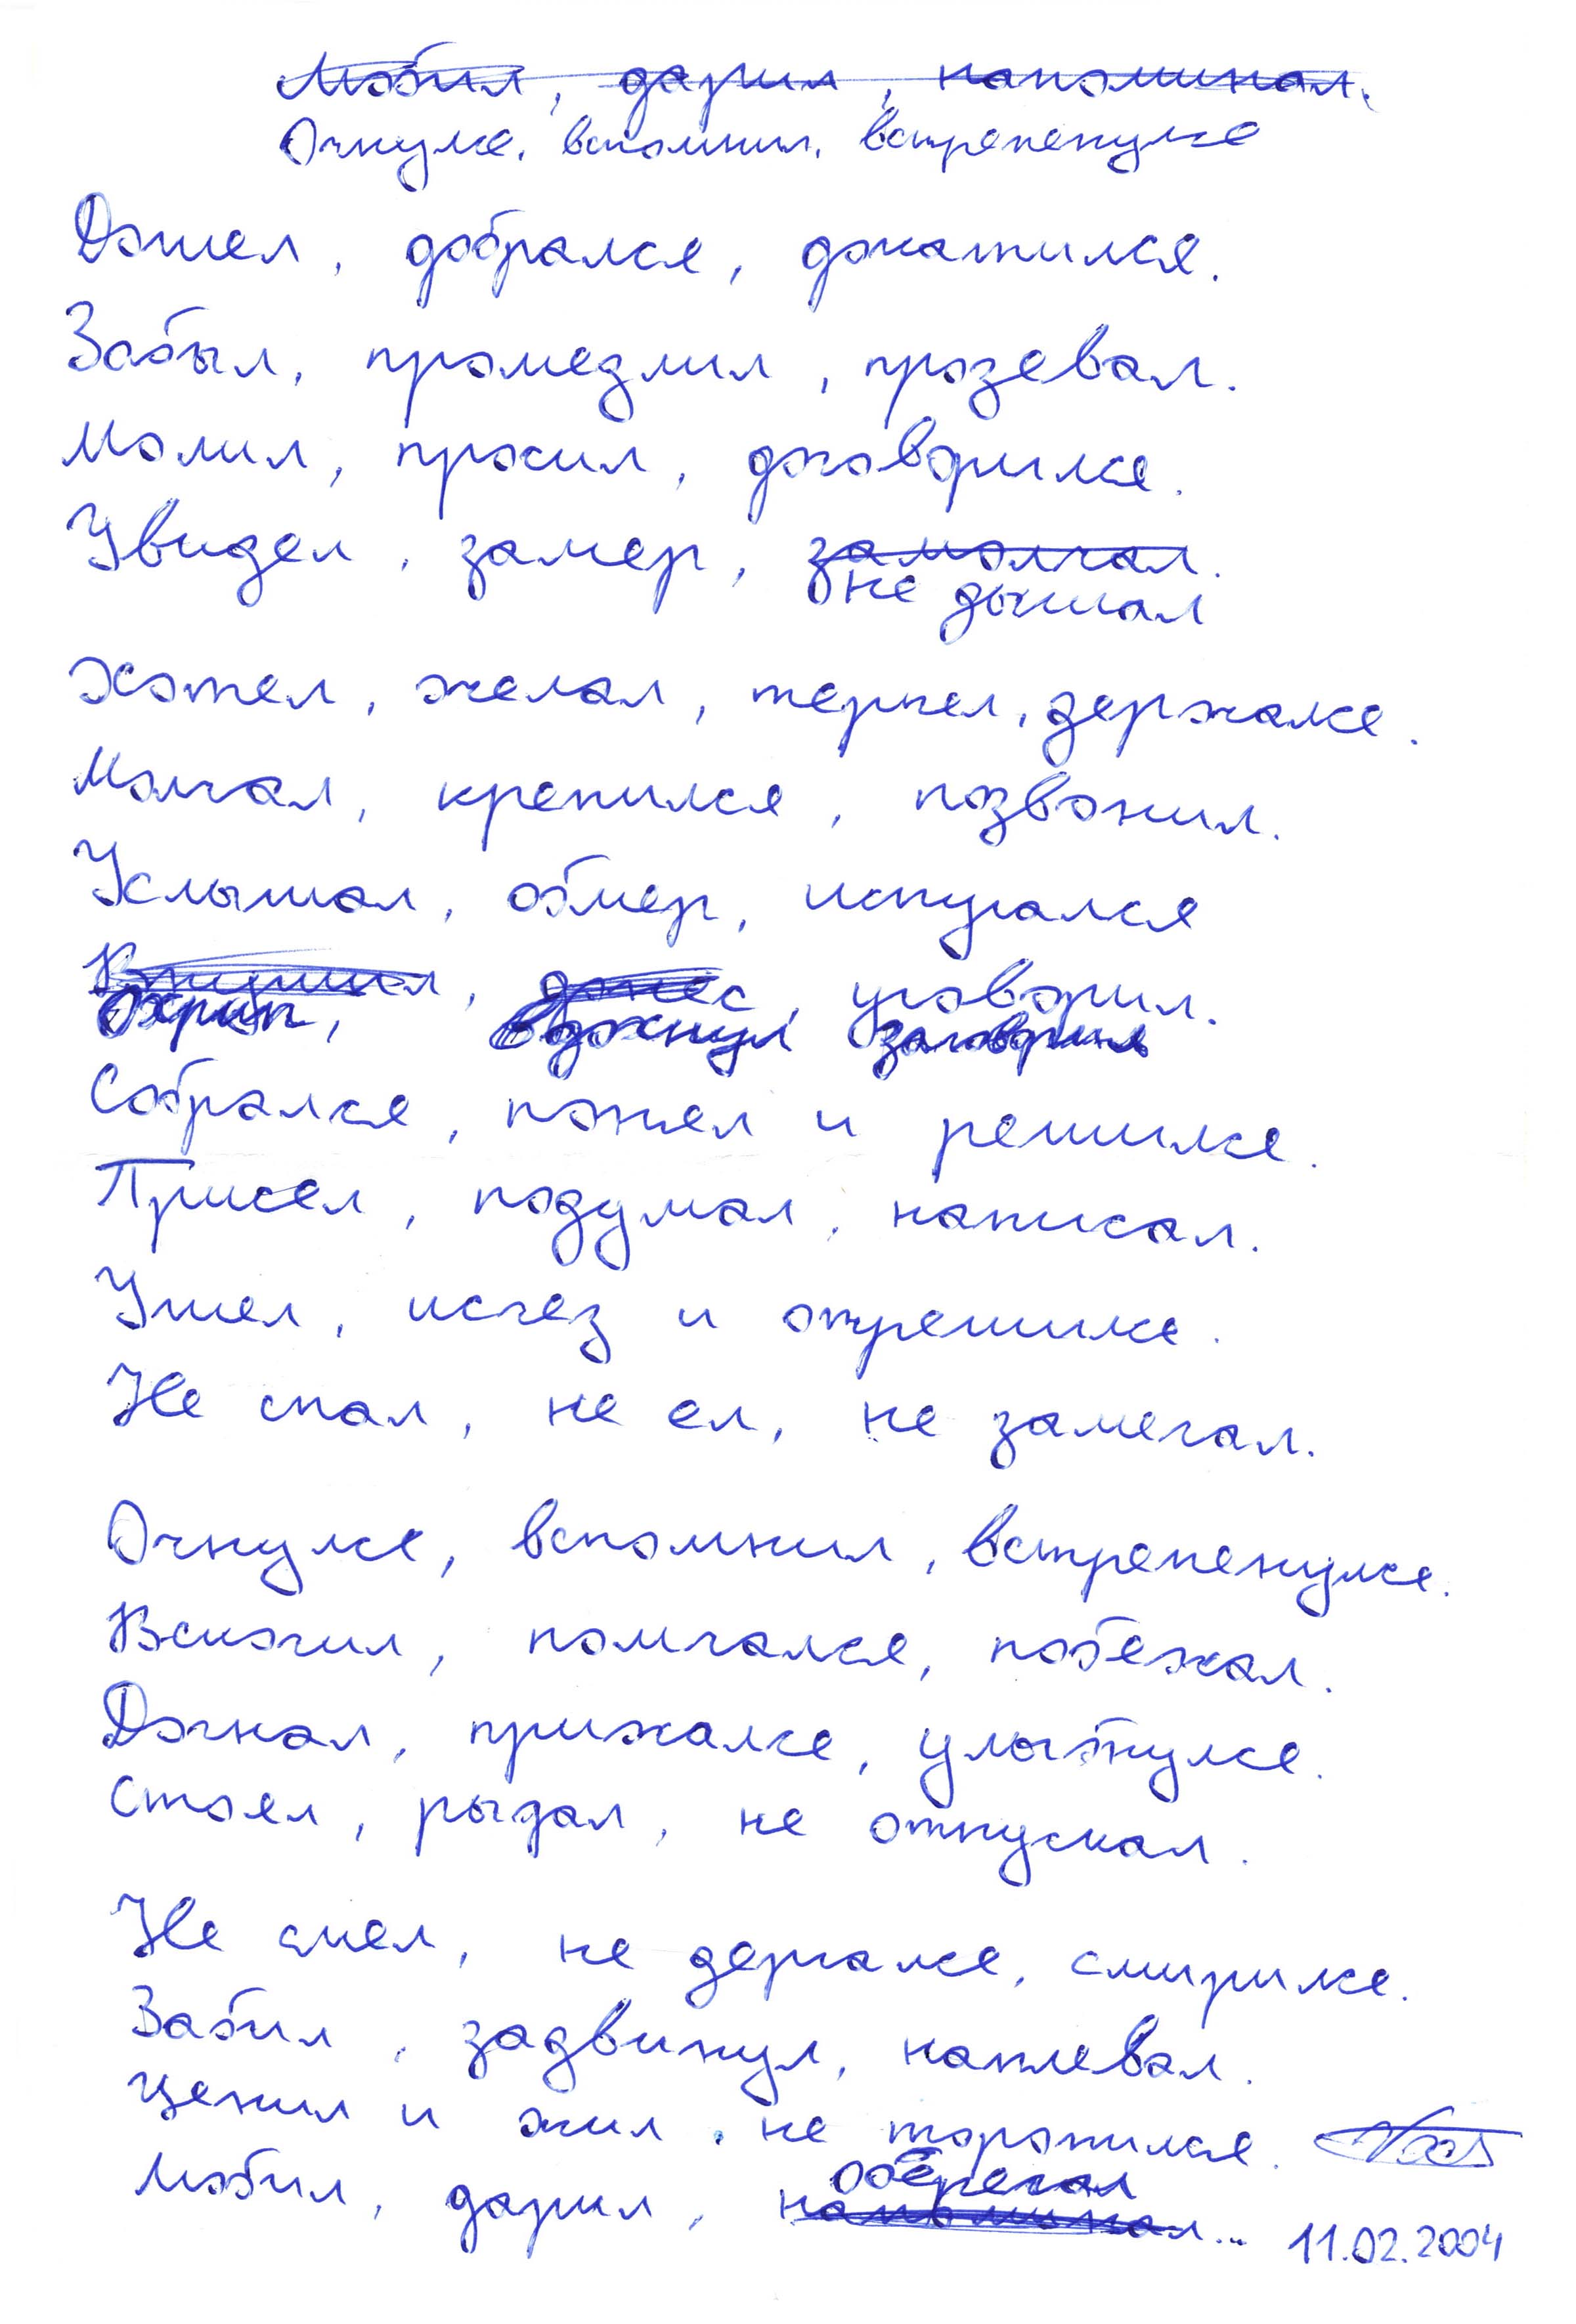 Любил, дарил, напоминал.
Очнулся, вспомнил, встрепенулся
Дошел, добрался, докатился.
Забыл, промедлил, прозевал.
Молил, просил, договорился.
Увидел, замер, замолчал.
не дышал
Хотел, желал, терпел, держался.
Молчал, крепился, позвонил.
Услышал, обмер, испугался
уговорил.
Охрип, вдохнул заговорил
Собрался, пошел и решился.
Присел, подумал, написал.
Ушел, исчез и отрешился.
Не спал, не ел, не замечал.
Очнулся, вспомнил, встрепенулся.
Вскочил, помчался, побежал.
Догнал, прижался, улыбнулся.
Стоял, рыдал, не отпускал.
Не смел, не дергался, смирился.
Забил, задвинул, наплевал.
Ценил и жил, не торопился.
оберегал
Любил, дарил, напоминал...
11.02.2004